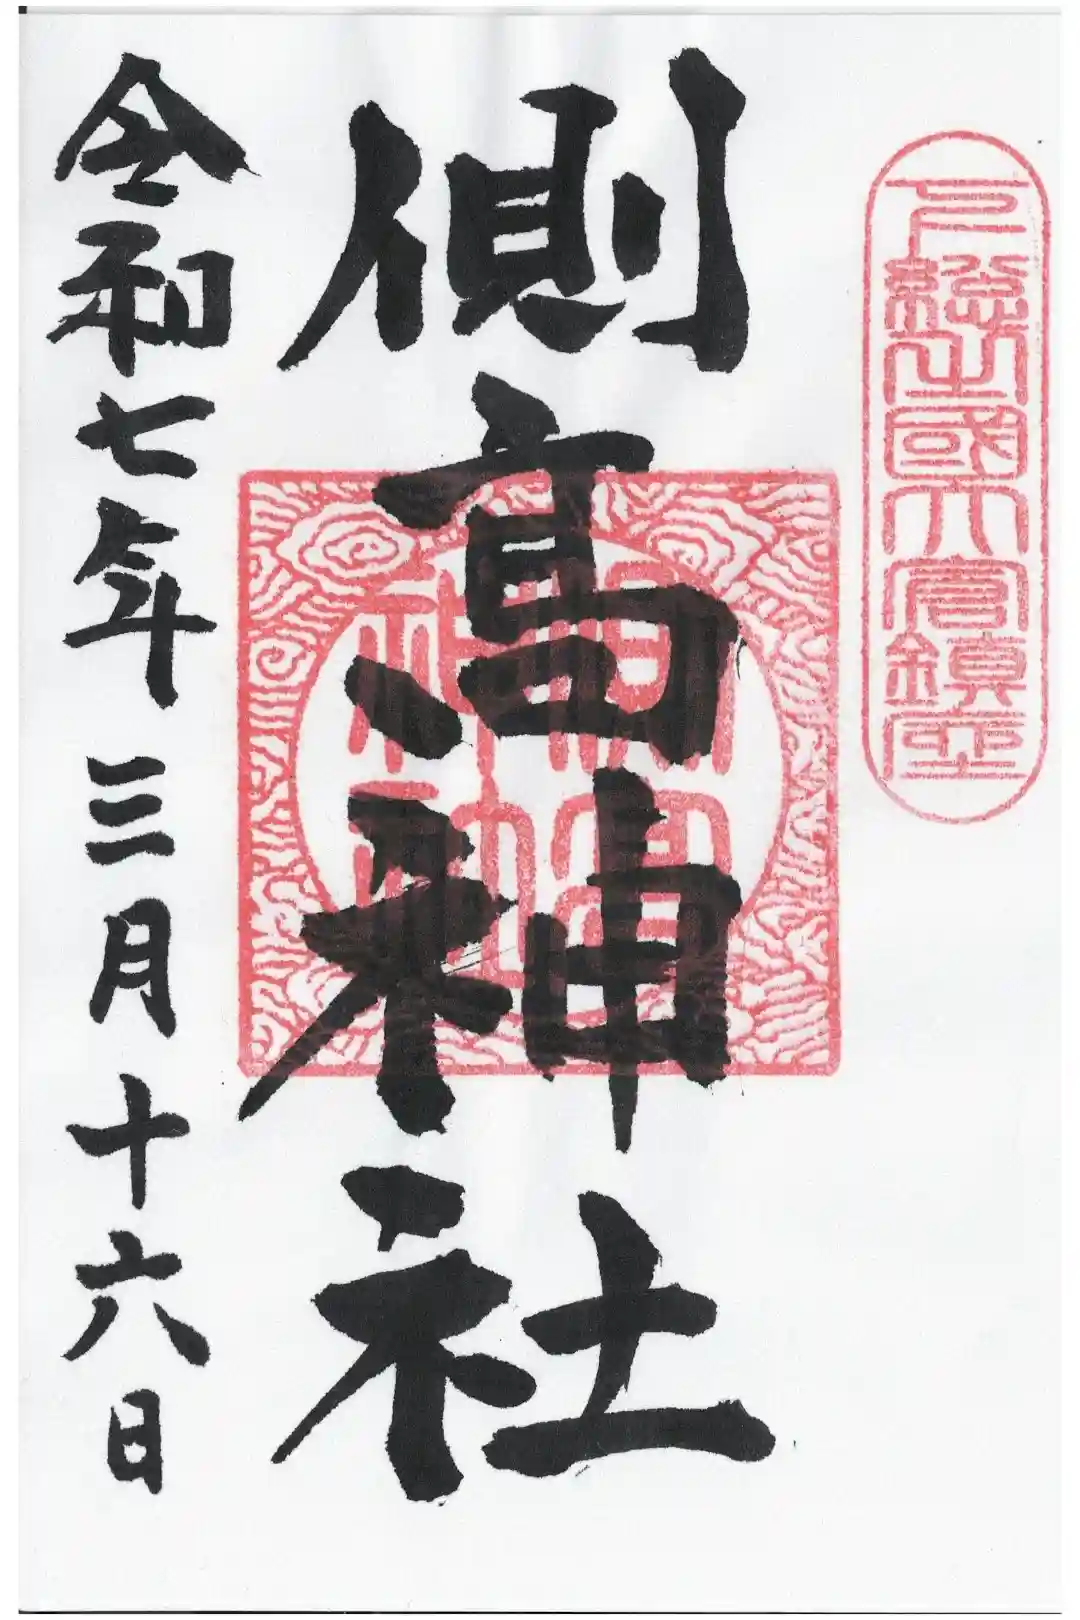 下總之國大倉鎮座
側高神社
側高
神社
令和七年三月十六日